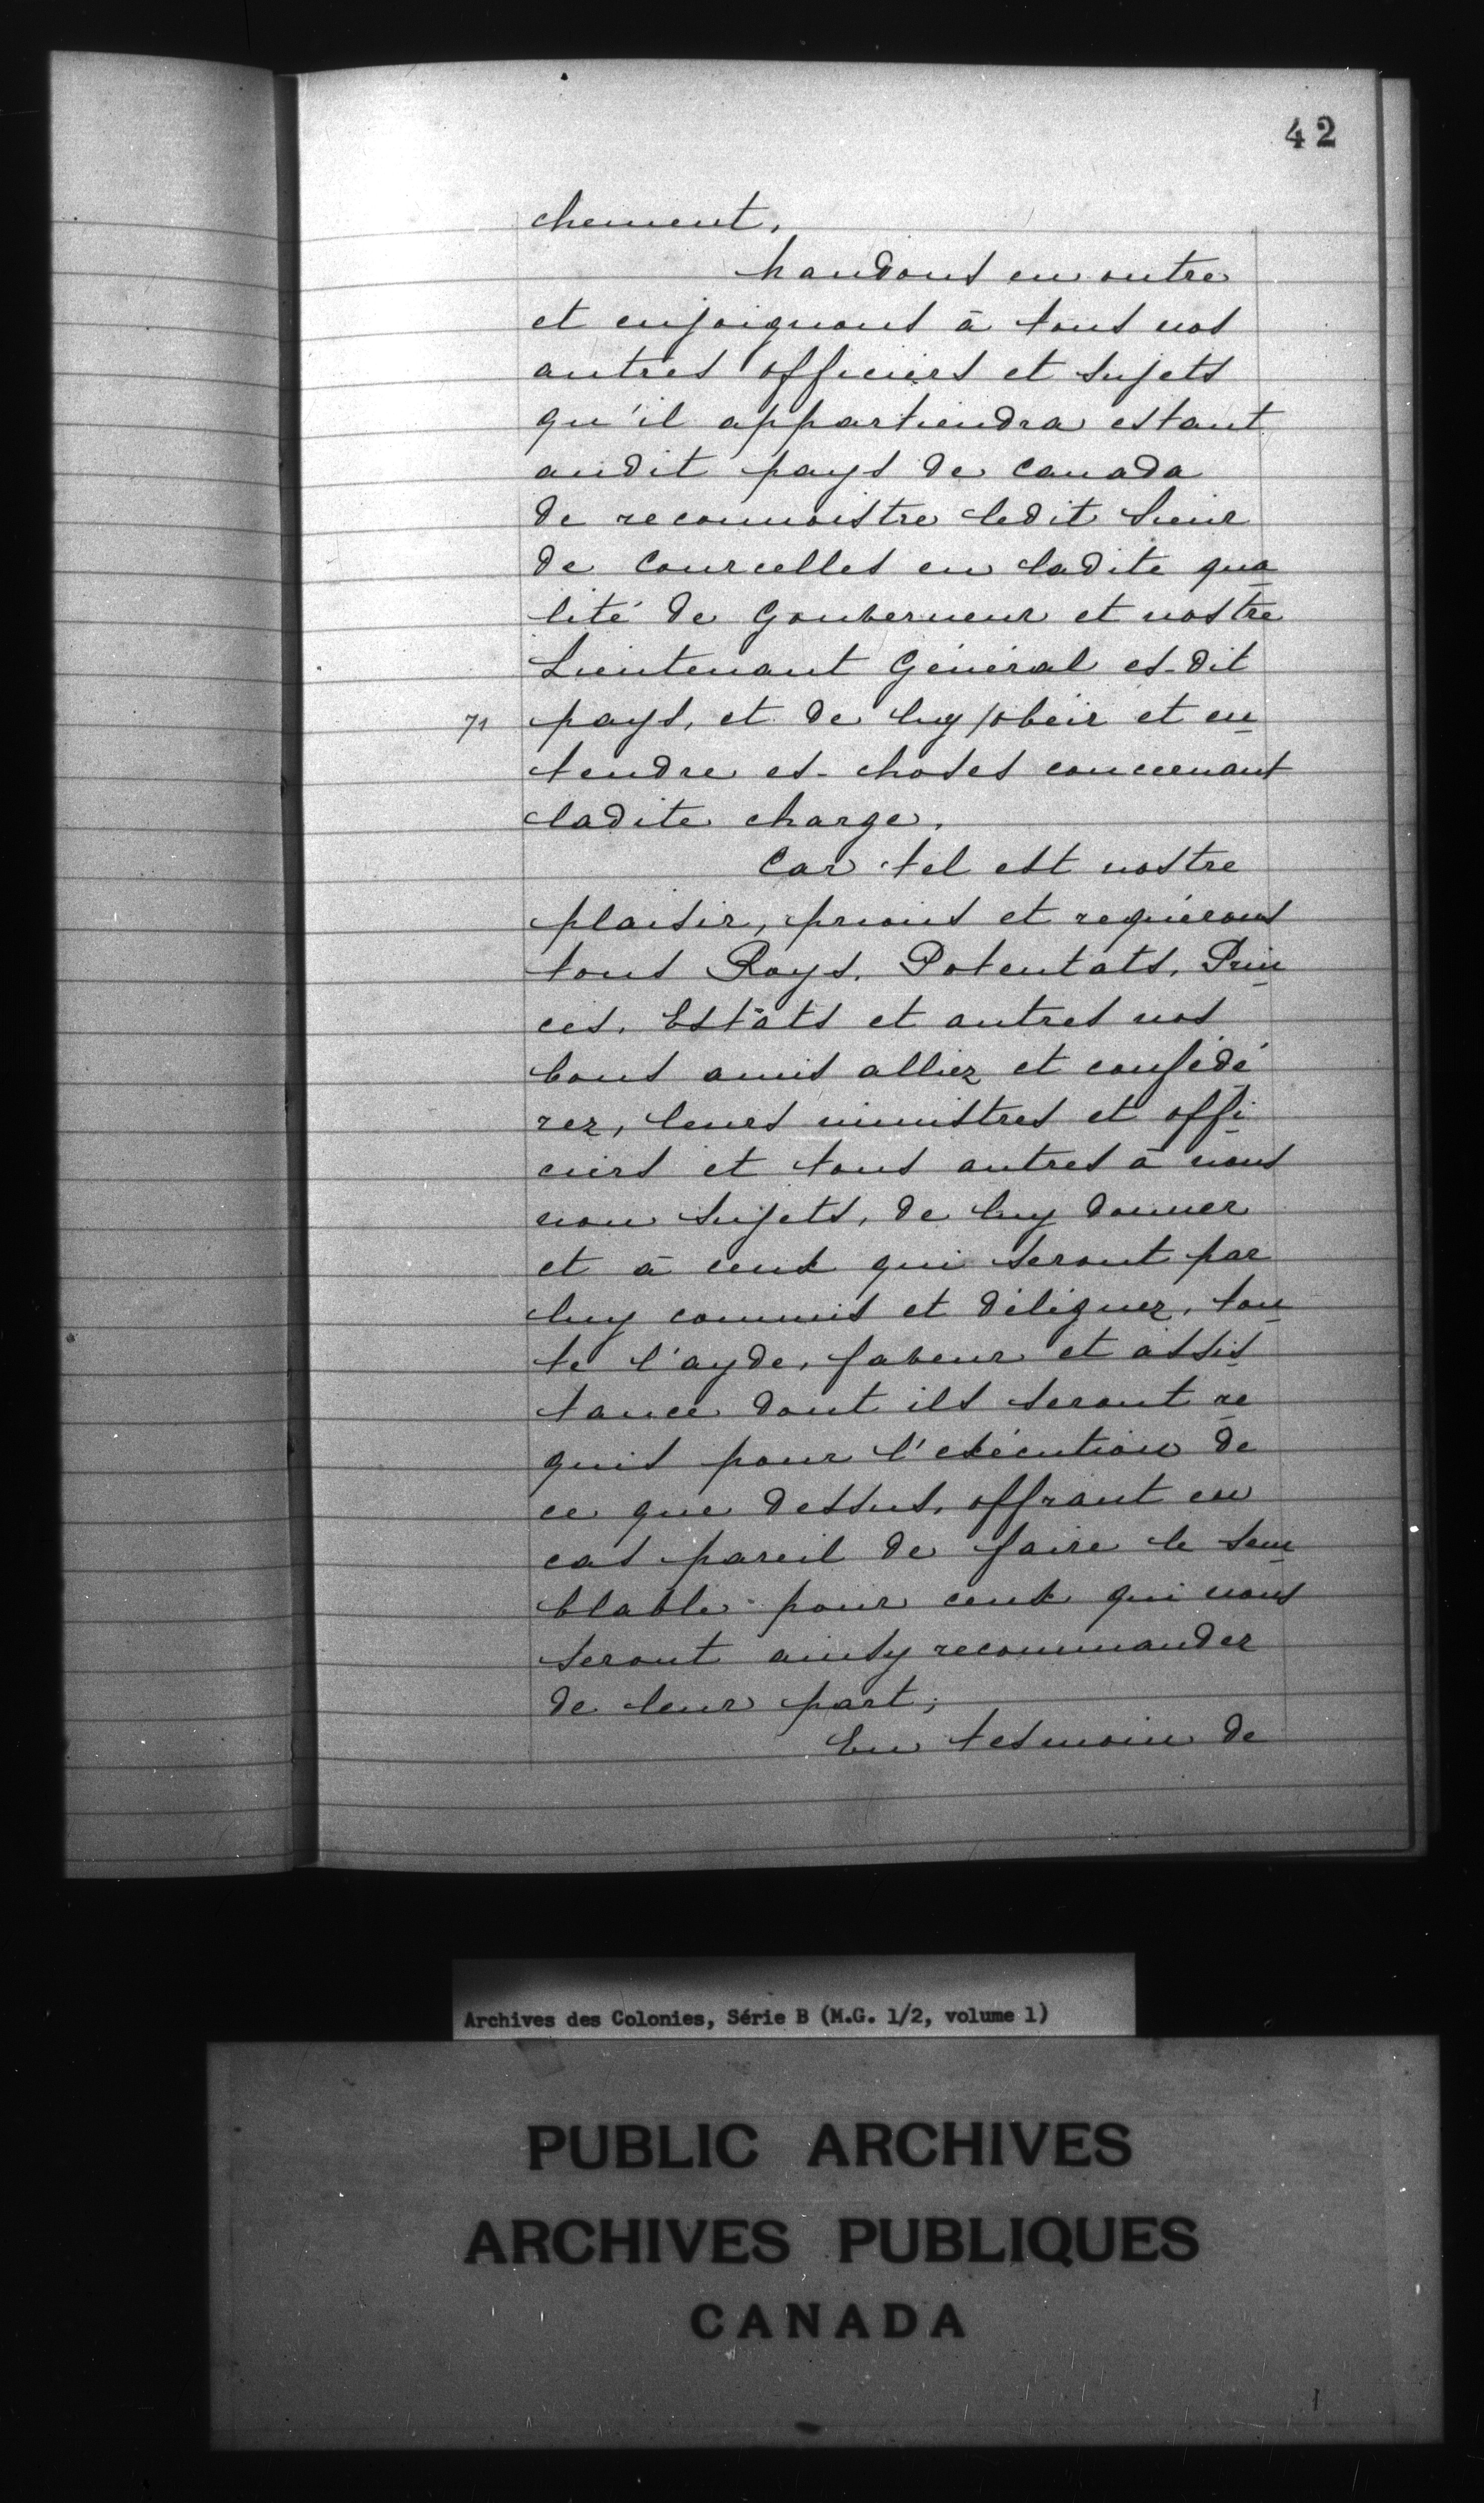 42
chement.
Mandons en outre
et enjoignons à tous nos
autres officiers et sujets
qu'il appartiendra estant
audit pays de Canada
de reconnoistre ledit Sieur
de Courcelles en ladite qua
lité de Gouverneur et nostre
Lieutenant Général es-dit
71 pays, et de luy/obéir et en
tendre es-choses concernant
ladite charge.
Car tel est nostre
plaisir, prions et requérons
tous Roys, Potentats, Prin
ces, Estats et autres nos
bons amis alliez et confédé
rez, leurs ministres et offi
ciers et tous autres à nous
non sujets, de luy donner
et à ceux qui seront par
luy commis et déléguez, tou
te l'ayde, faveur et assis
tance dont ils seront re
quis pour l'exécution de
ce que dessus, offrant en
cas pareil de faire le sem
blable pour ceux qui nous
seront ainsy recommandez
de leur part;
En tesmoin de
Archives des Colonies, Série B (M.G. 1/2, volume 1)
PUBLIC ARCHIVES
ARCHIVES PUBLIQUES
CANADA